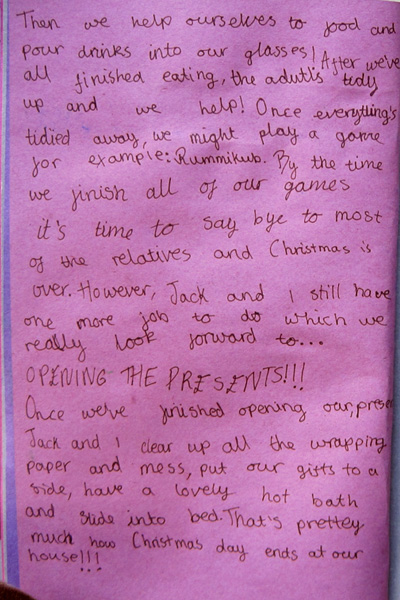 Then we help ourselves to food and
pour drinks into our glasses! After we've
all finished eating, the adult's tidy
up and we help! Once everything's
tidied away, we might play a game
for example: Rummikub. By the time
we finish all of our games
it's time to say bye to most
of the relatives and Christmas is
over. However, Jack and I still have
one more job to do which we
really look forward to...
OPENING THE PRESENTS!!!
Once we've finished opening our presen
Jack and I clear up all the wrapping
paper and mess, put our gifts to a
side, have a lovely hot bath
and slide into bed. That's prettey
much how Christmas day ends at our
house!!!